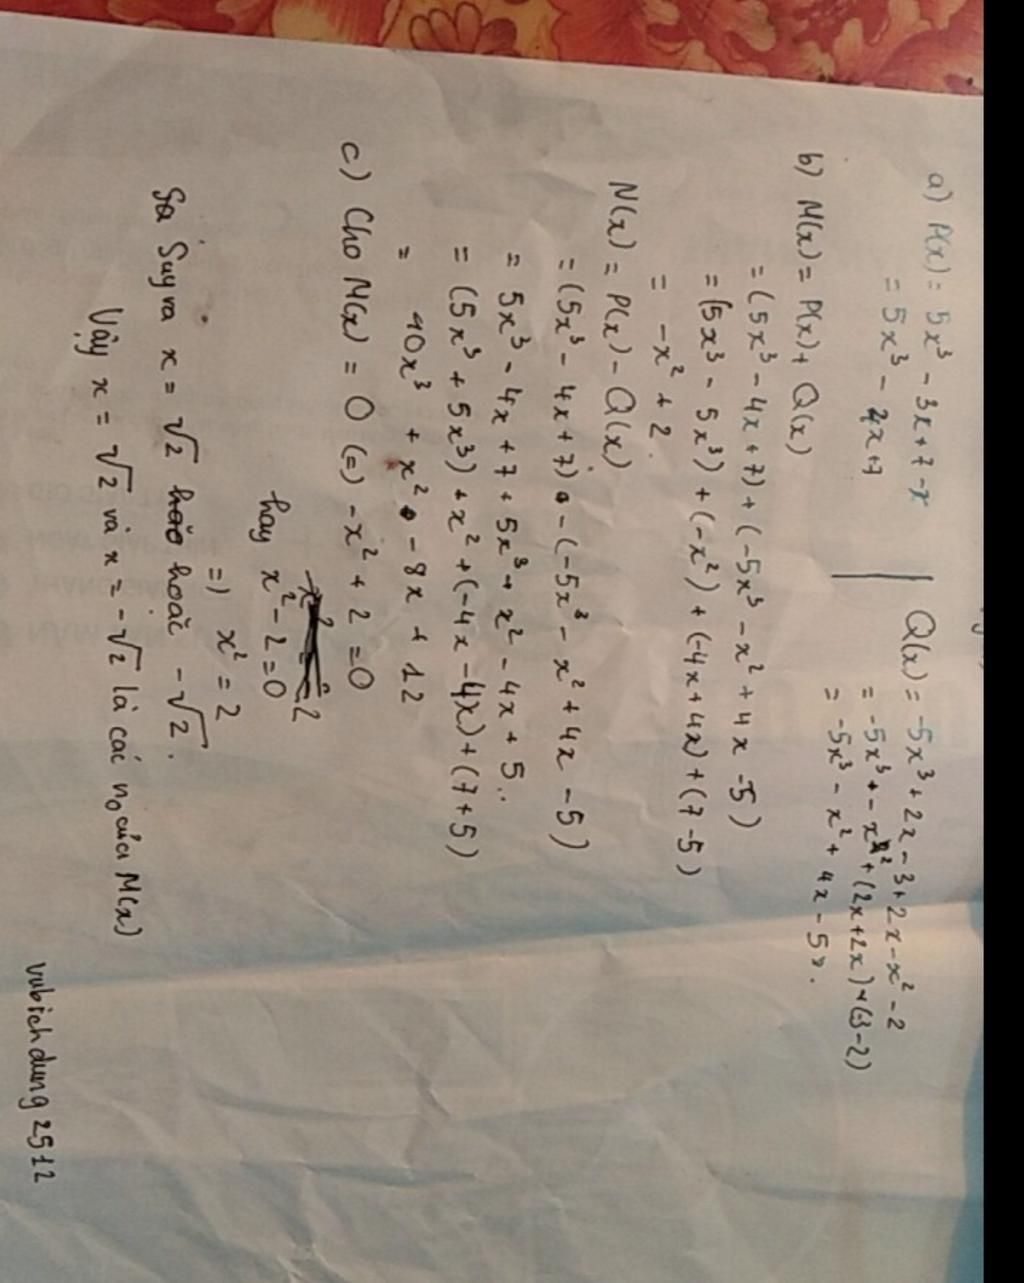 a) P(x) = 5x³ - 3x + 7 - x
= 5x³ - 4x + 7
Q(x) = -5x³ + 2x - 3 + 2x - x² - 2
= -5x³ + - x² + (2x + 2x) + (-3 - 2)
= -5x³ - x² + 4x - 5
b) M(x) = P(x) + Q(x)
= (5x³ - 4x + 7) + (-5x³ - x² + 4x - 5)
= (5x³ - 5x³) + (-x²) + (-4x + 4x) + (7 - 5)
= -x² + 2.
N(x) = P(x) - Q(x)
= (5x³ - 4x + 7) - (-5x³ - x² + 4x - 5)
= 5x³ - 4x + 7 + 5x³ + x² - 4x + 5.
= (5x³ + 5x³) + x² + (-4x - 4x) + (7 + 5)
= 10x³ + x² - 8x + 12
c) Cho M(x) = 0 (=) -x² + 2 = 0
hay x² - 2 = 0
=) x² = 2
Suy ra x = √2 hoặc -√2.
Vậy x = √2 và x = -√2 là các n₀ của M(x)
vubichdung2512